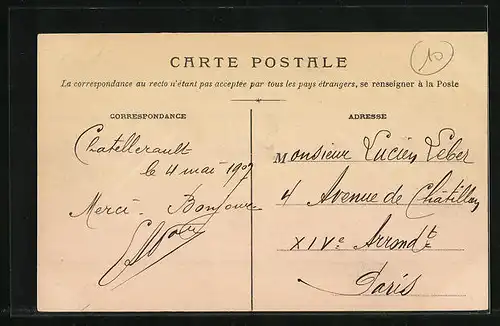 10
CARTE POSTALE
La correspondance au recto n'étant pas acceptée par tous les pays étrangers, se renseigner à la Poste
CORRESPONDANCE
Chatellerault
le 4 mai 1907
Merci - Bonjour
ADRESSE
Monsieur Lucien Leber
4 Avenue de Châtillon
XIVe Arrondt
Paris